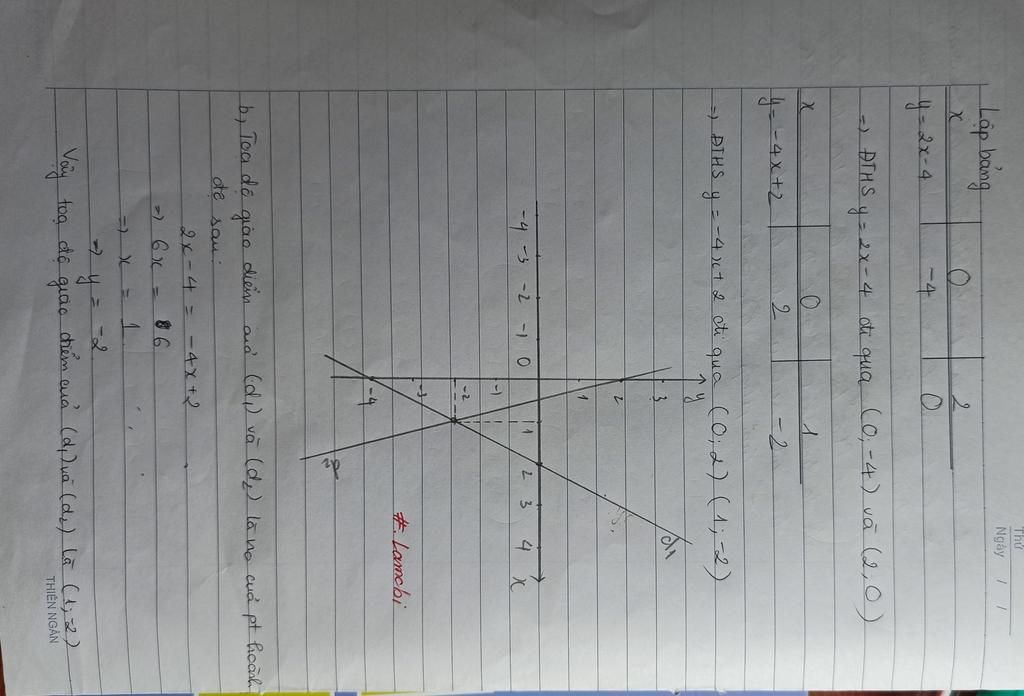 Thứ
Ngày / /
Lập bảng
x 0 2
y = 2x-4 -4 0
=> ĐTHS y = 2x-4 đi qua (0,-4) và (2,0)
x 0 1
y = -4x+2 2 -2
=> ĐTHS y = -4x+2 đi qua (0;2) (1;-2)
y
3
2
1
-4 -3 -2 -1 0 1 2 3 4 x
-1
-2
-3
-4
d1
#.Lamchi
b, Toạ độ giao điểm cuả (d1) và (d2) là no cuả pt hoành
độ sau:
2x-4 = -4x+2
=> 6x = 6
=> x = 1
=> y = -2
Vậy toạ độ giao điểm cuả (d1) và (d2) là (1;-2)
THIÊN NGÂN